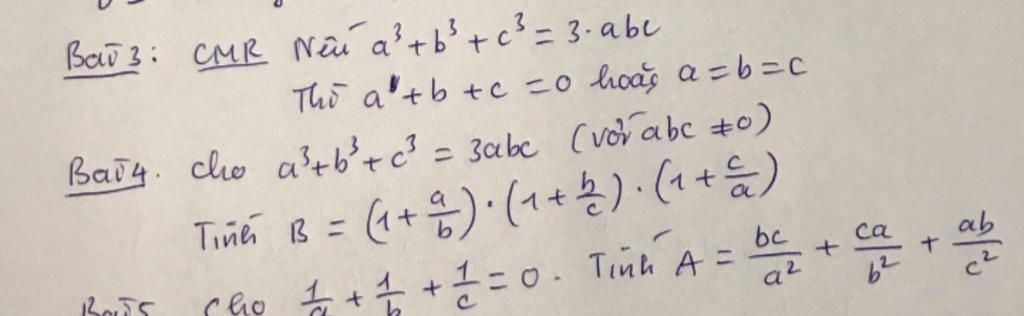 Bài 3: CMR Nếu a³ + b³ + c³ = 3·abc
Thì a + b + c = 0 hoặc a = b = c
Bài 4. Cho a³ + b³ + c³ = 3abc (với abc ≠ 0)
Tính B = (1 + a/b) · (1 + b/c) · (1 + c/a)
Bài 5 Cho 1/a + 1/b + 1/c = 0. Tính A = bc/a² + ca/b² + ab/c²